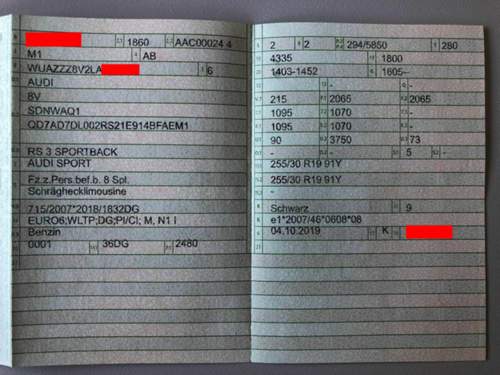 1860 AAC00024 4
M1 4 AB
WUAZZZ8V2LA 6
AUDI
8V
SDNWAQ1
QD7AD7DL002RS21E914BFAEM1
RS 3 SPORTBACK
AUDI SPORT
Fz.z.Pers.bef.b. 8 Spl.
Schräghecklimousine
715/2007*2018/1832DG
EURO6;WLTP;DG;PI/CI; M, N1 I
Benzin
0001 36DG 2480
2 2 294/5850 280
4335 1800
1403-1452 1605--
- -
215 2065 2065
1095 1070 -
1095 1070 -
90 3750 73
- - 5 -
255/30 R19 91Y
255/30 R19 91Y
-
Schwarz 9
e1*2007/46*0608*08
04.10.2019 K